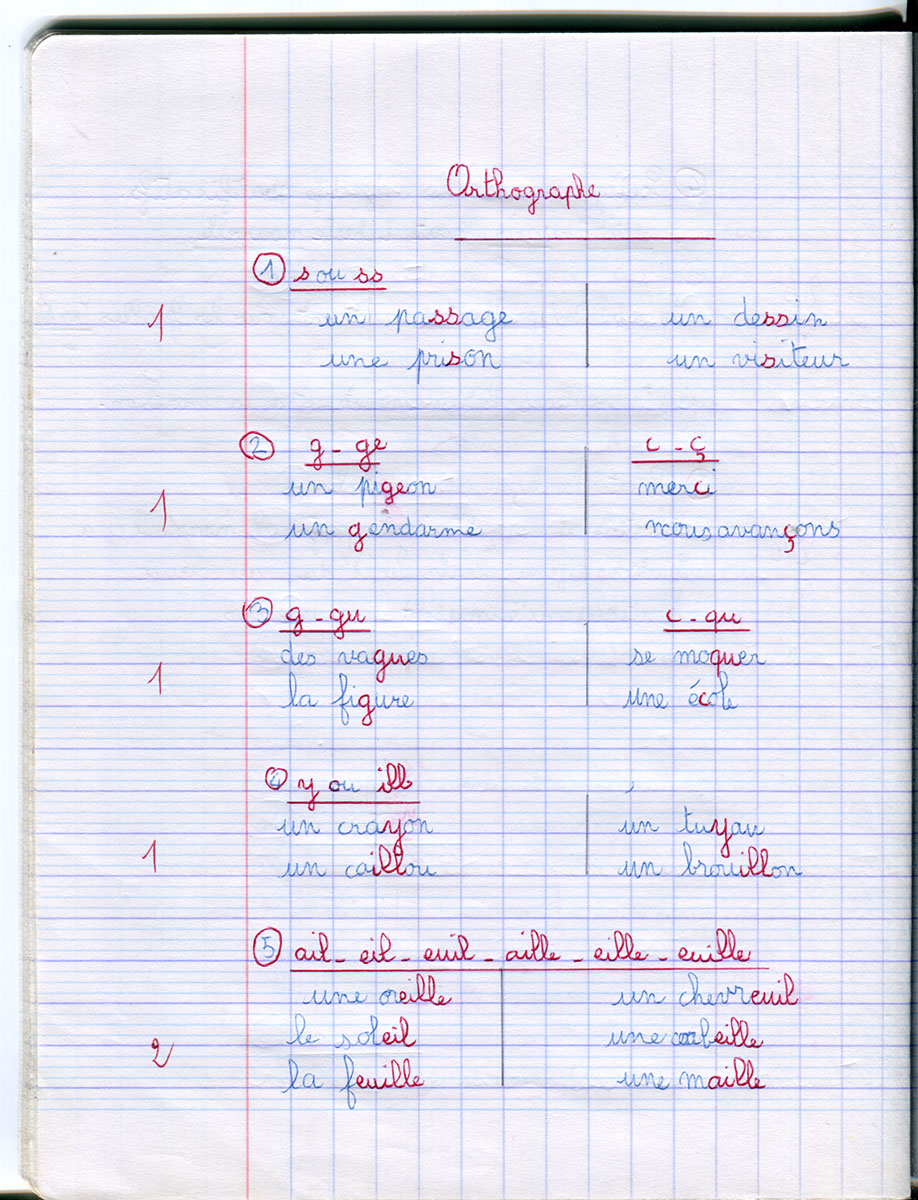 Orthographe
① s ou ss
1 un passage un dessin
une prison un visiteur
② g - ge c - ç
un pigeon merci
1 un gendarme nous avançons
③ g - gu c - qu
des vagues se moquer
1 la figure une école
④ y ou ill
un crayon un tuyau
1 un caillou un brouillon
⑤ ail - eil - euil - aille - eille - euille
une oreille un chevreuil
le soleil une corbeille
2 la feuille une maille